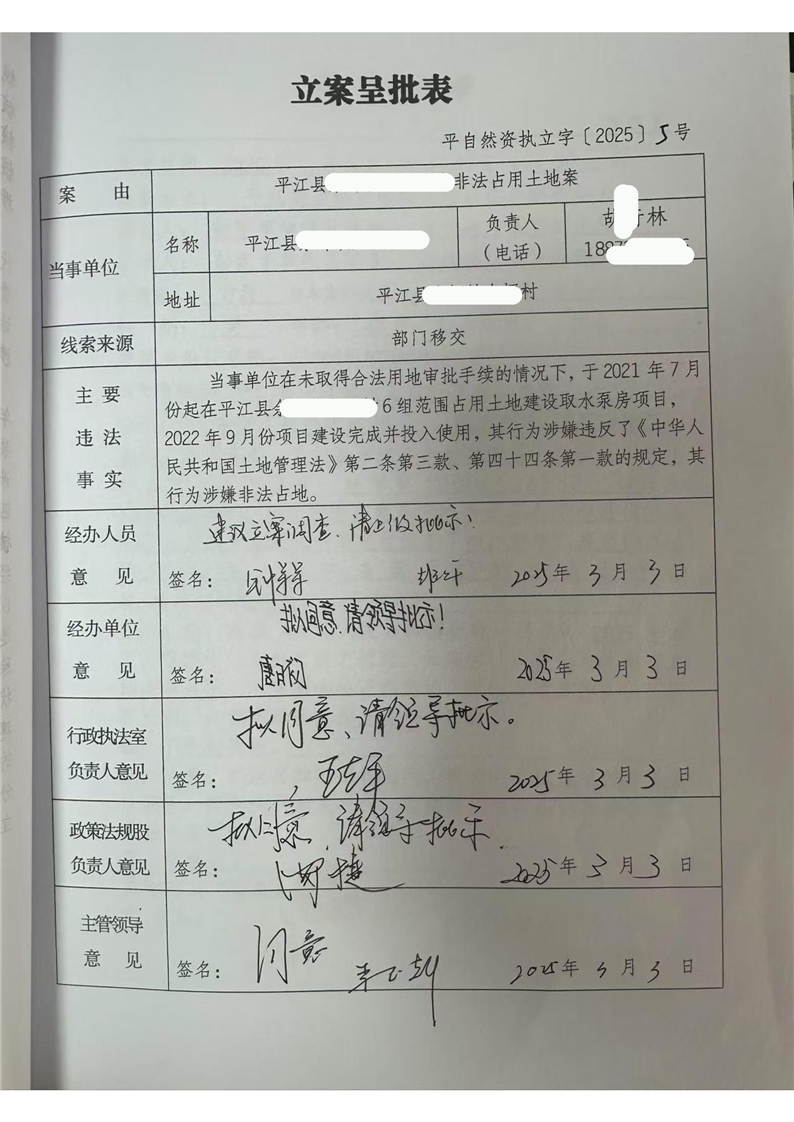 立案呈批表
平自然资执立字〔2025〕5号
案 由 平江县 非法占用土地案
当事单位 名称 平江县 负责人（电话） 胡 林 188
地址 平江县 村
线索来源 部门移交
主要违法事实 当事单位在未取得合法用地审批手续的情况下，于2021年7月
份起在平江县 6组范围占用土地建设取水泵房项目，
2022年9月份项目建设完成并投入使用，其行为涉嫌违反了《中华人
民共和国土地管理法》第二条第三款、第四十四条第一款的规定，其
行为涉嫌非法占地。
经办人员意见 建议立案调查，请上级批示！
签名： 2025年3月3日
经办单位意见 拟同意，请领导批示！
签名： 2025年3月3日
行政执法室负责人意见 拟同意、请领导批示。
签名： 2025年3月3日
政策法规股负责人意见 拟同意，请领导批示
签名： 2025年3月3日
主管领导意见 同意
签名： 2025年3月3日